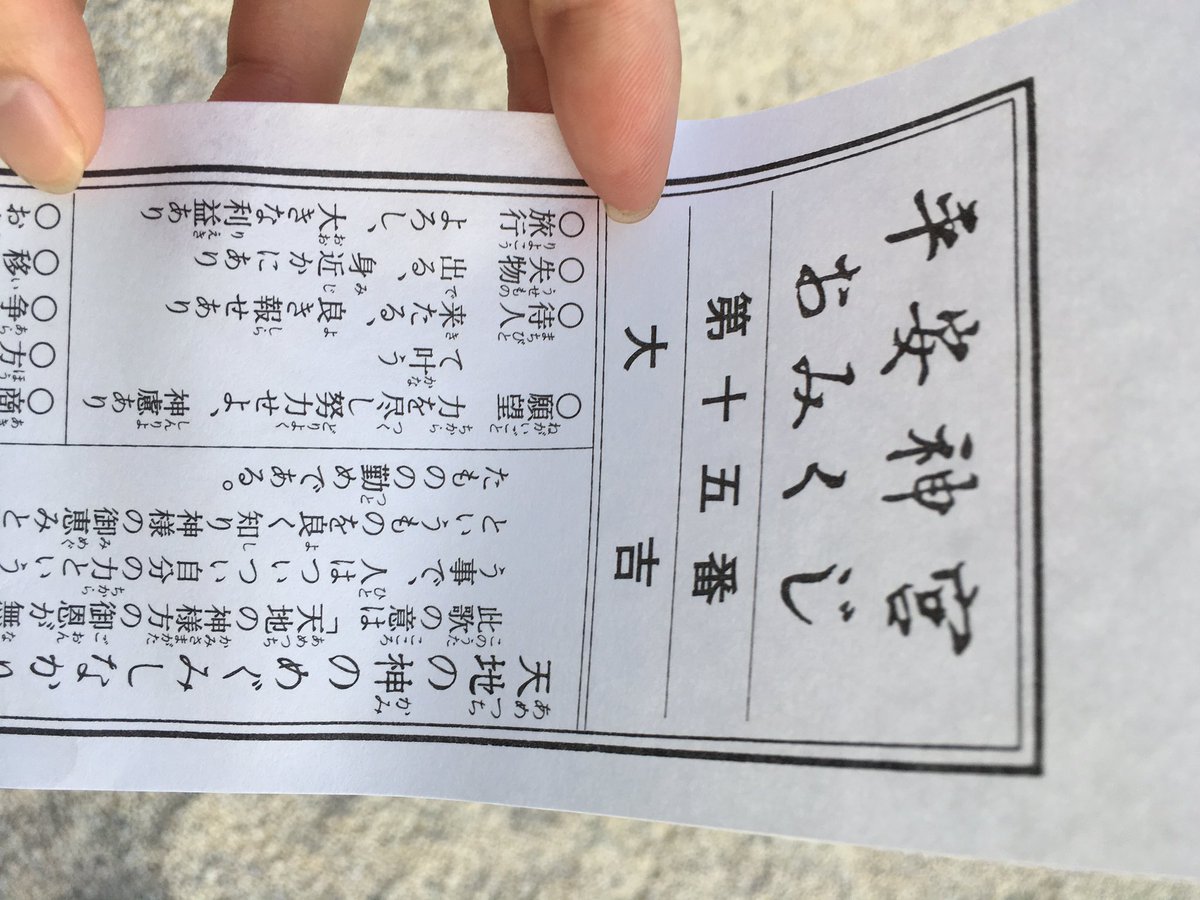 平安神宮
おみくじ
第十五番
大吉
天地の神のめぐみしなかり
此歌の意は「天地の神様方の御恩が無
う事で、人はついつい自分の力という
というものを良く知り神様の御恵みと
たものの勤めである。
○願望 力を尽し努力せよ、神慮あり
て叶う
○待人 来たる、良き報せあり
○失物 出る、身近かにあり
○旅行 よろし、大きな利益あり
○商
○方
○争
○移
○お